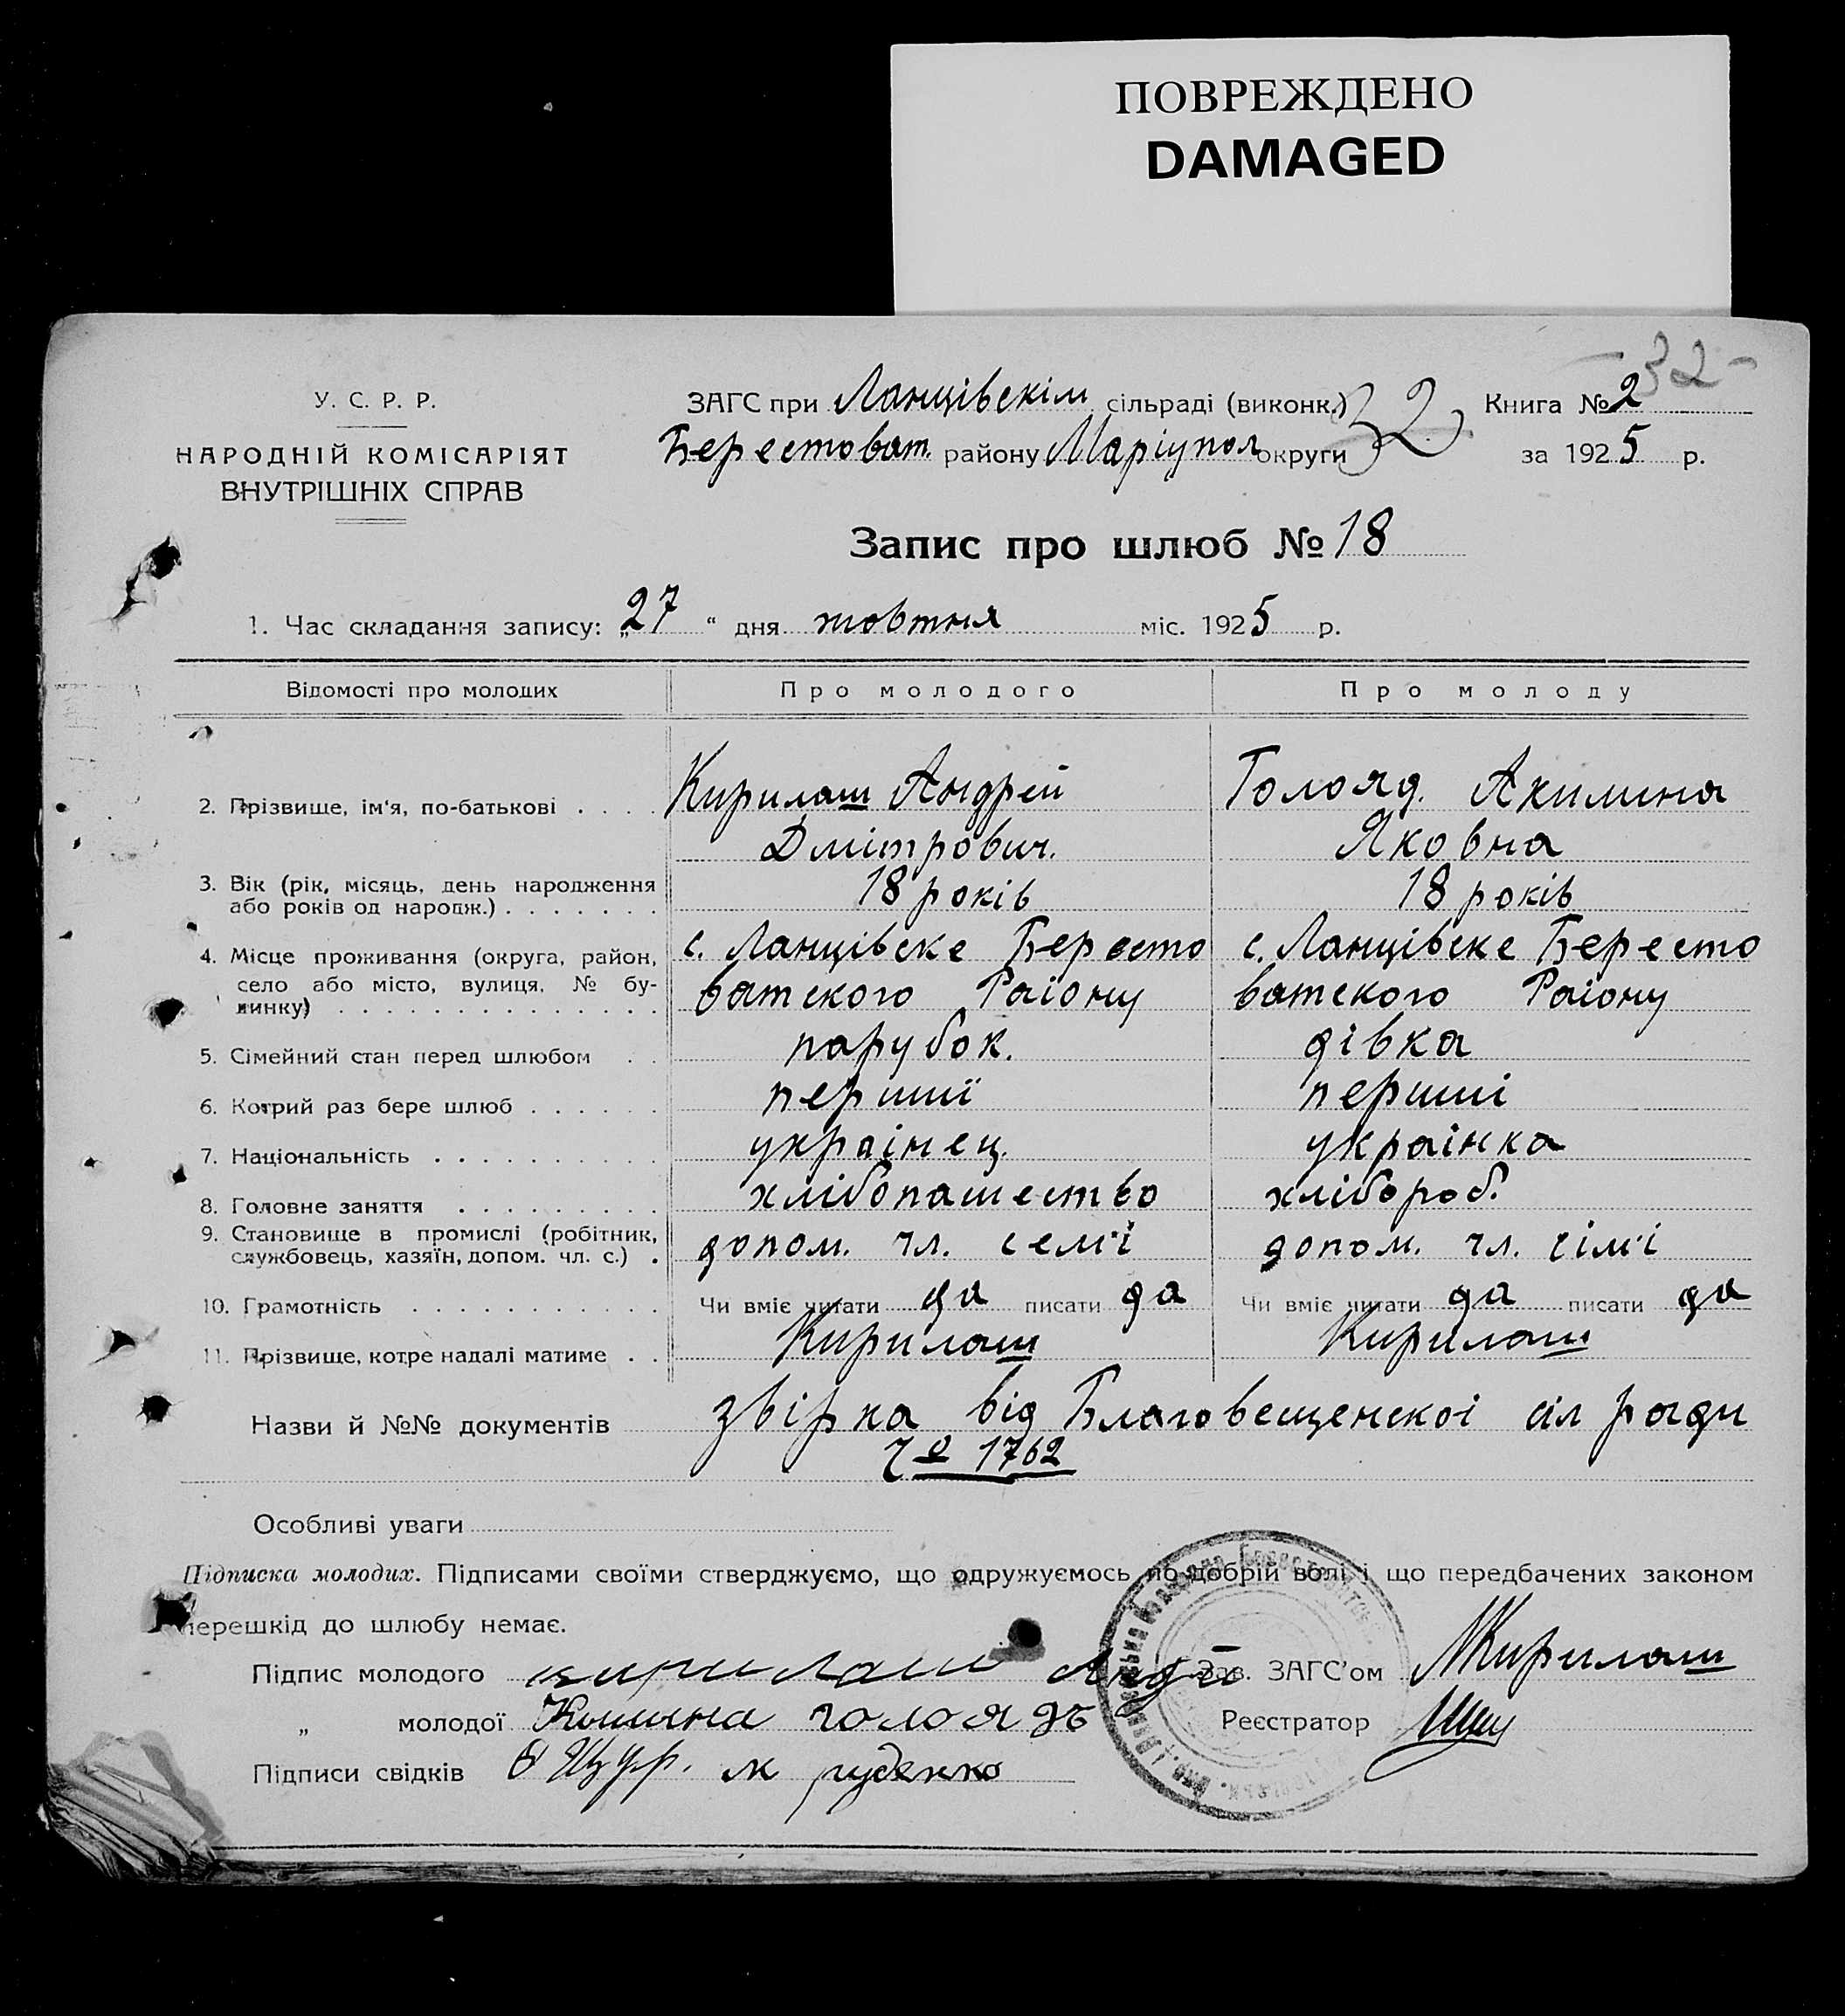 ПОВРЕЖДЕНО
DAMAGED
32
У. С. Р. Р.
НАРОДНІЙ КОМІСАРІЯТ
ВНУТРІШНІХ СПРАВ
ЗАГС при Ланцівскім сільраді (виконк.) 32 Книга № 2
Берестоват. району Маріупол округи за 1925 р.
Запис про шлюб № 18
1. Час складання запису: „27“ дня жовтня міс. 1925 р.
Відомості про молодих Про молодого Про молоду
2. Прізвище, ім'я, по-батькові . . . . Кирилаш Андрей Голояд. Акилина
Дмітрович. Яковна
3. Вік (рік, місяць, день народження
або років од народж.) . . . . . . . 18 років 18 років
4. Місце проживання (округа, район, с. Ланцівске Бересто с. Ланцівске Бересто
село або місто, вулиця, № бу-
динку) . . . . . . . . . . . . . . ватского Раіону ватского Раіону
5. Сімейний стан перед шлюбом . . парубок. дівка
6. Котрий раз бере шлюб . . . . . . першиї перший
7. Національність . . . . . . . . . . українец. українка
8. Головне заняття . . . . . . . . . хлібопашество хлібороб.
9. Становище в промислі (робітник,
службовець, хазяїн, допом. чл. с.) . допом. чл. семї допом. чл. сімї
10. Грамотність . . . . . . . . . . . Чи вміє читати да писати да Чи вміє читати да писати да
11. Прізвище, котре надалі матиме . . Кирилаш Кирилаш
Назви й №№ документів звірка від Благовещенскоі сіл ради
1762
Особливі уваги
Підписка молодих. Підписами своїми стверджуємо, що одружуємось по добрій волі і що передбачених законом
перешкід до шлюбу немає.
Підпис молодого кирилаш Зав. ЗАГС'ом Кирилаш
„ молодої голоядь Реєстратор
Підписи свідків Щур. руденко